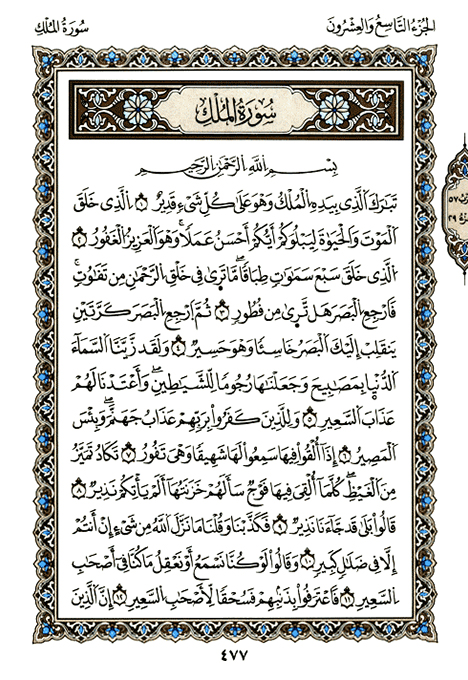 الجزء التاسع والعشرون
سورة الملك
سُورَةُ المُلْكِ
بِسْمِ اللَّهِ الرَّحْمَٰنِ الرَّحِيمِ
تَبَارَكَ الَّذِي بِيَدِهِ الْمُلْكُ وَهُوَ عَلَىٰ كُلِّ شَيْءٍ قَدِيرٌ ١ الَّذِي خَلَقَ
الْمَوْتَ وَالْحَيَوٰةَ لِيَبْلُوَكُمْ أَيُّكُمْ أَحْسَنُ عَمَلًا وَهُوَ الْعَزِيزُ الْغَفُورُ ٢
الَّذِي خَلَقَ سَبْعَ سَمَٰوَٰتٍ طِبَاقًا مَّا تَرَىٰ فِي خَلْقِ الرَّحْمَٰنِ مِن تَفَٰوُتٍ
فَارْجِعِ الْبَصَرَ هَلْ تَرَىٰ مِن فُطُورٍ ٣ ثُمَّ ارْجِعِ الْبَصَرَ كَرَّتَيْنِ
يَنقَلِبْ إِلَيْكَ الْبَصَرُ خَاسِئًا وَهُوَ حَسِيرٌ ٤ وَلَقَدْ زَيَّنَّا السَّمَاءَ
الدُّنْيَا بِمَصَٰبِيحَ وَجَعَلْنَٰهَا رُجُومًا لِّلشَّيَٰطِينِ وَأَعْتَدْنَا لَهُمْ
عَذَابَ السَّعِيرِ ٥ وَلِلَّذِينَ كَفَرُوا بِرَبِّهِمْ عَذَابُ جَهَنَّمَ وَبِئْسَ
الْمَصِيرُ ٦ إِذَا أُلْقُوا فِيهَا سَمِعُوا لَهَا شَهِيقًا وَهِيَ تَفُورُ ٧ تَكَادُ تَمَيَّزُ
مِنَ الْغَيْظِ كُلَّمَا أُلْقِيَ فِيهَا فَوْجٌ سَأَلَهُمْ خَزَنَتُهَا أَلَمْ يَأْتِكُمْ نَذِيرٌ ٨
قَالُوا بَلَىٰ قَدْ جَاءَنَا نَذِيرٌ ٩ فَكَذَّبْنَا وَقُلْنَا مَا نَزَّلَ اللَّهُ مِن شَيْءٍ إِنْ أَنتُمْ
إِلَّا فِي ضَلَٰلٍ كَبِيرٍ ١٠ وَقَالُوا لَوْ كُنَّا نَسْمَعُ أَوْ نَعْقِلُ مَا كُنَّا فِي أَصْحَٰبِ
السَّعِيرِ ١١ فَاعْتَرَفُوا بِذَنبِهِمْ فَسُحْقًا لِّأَصْحَٰبِ السَّعِيرِ ١٢ إِنَّ الَّذِينَ
٤٧٧